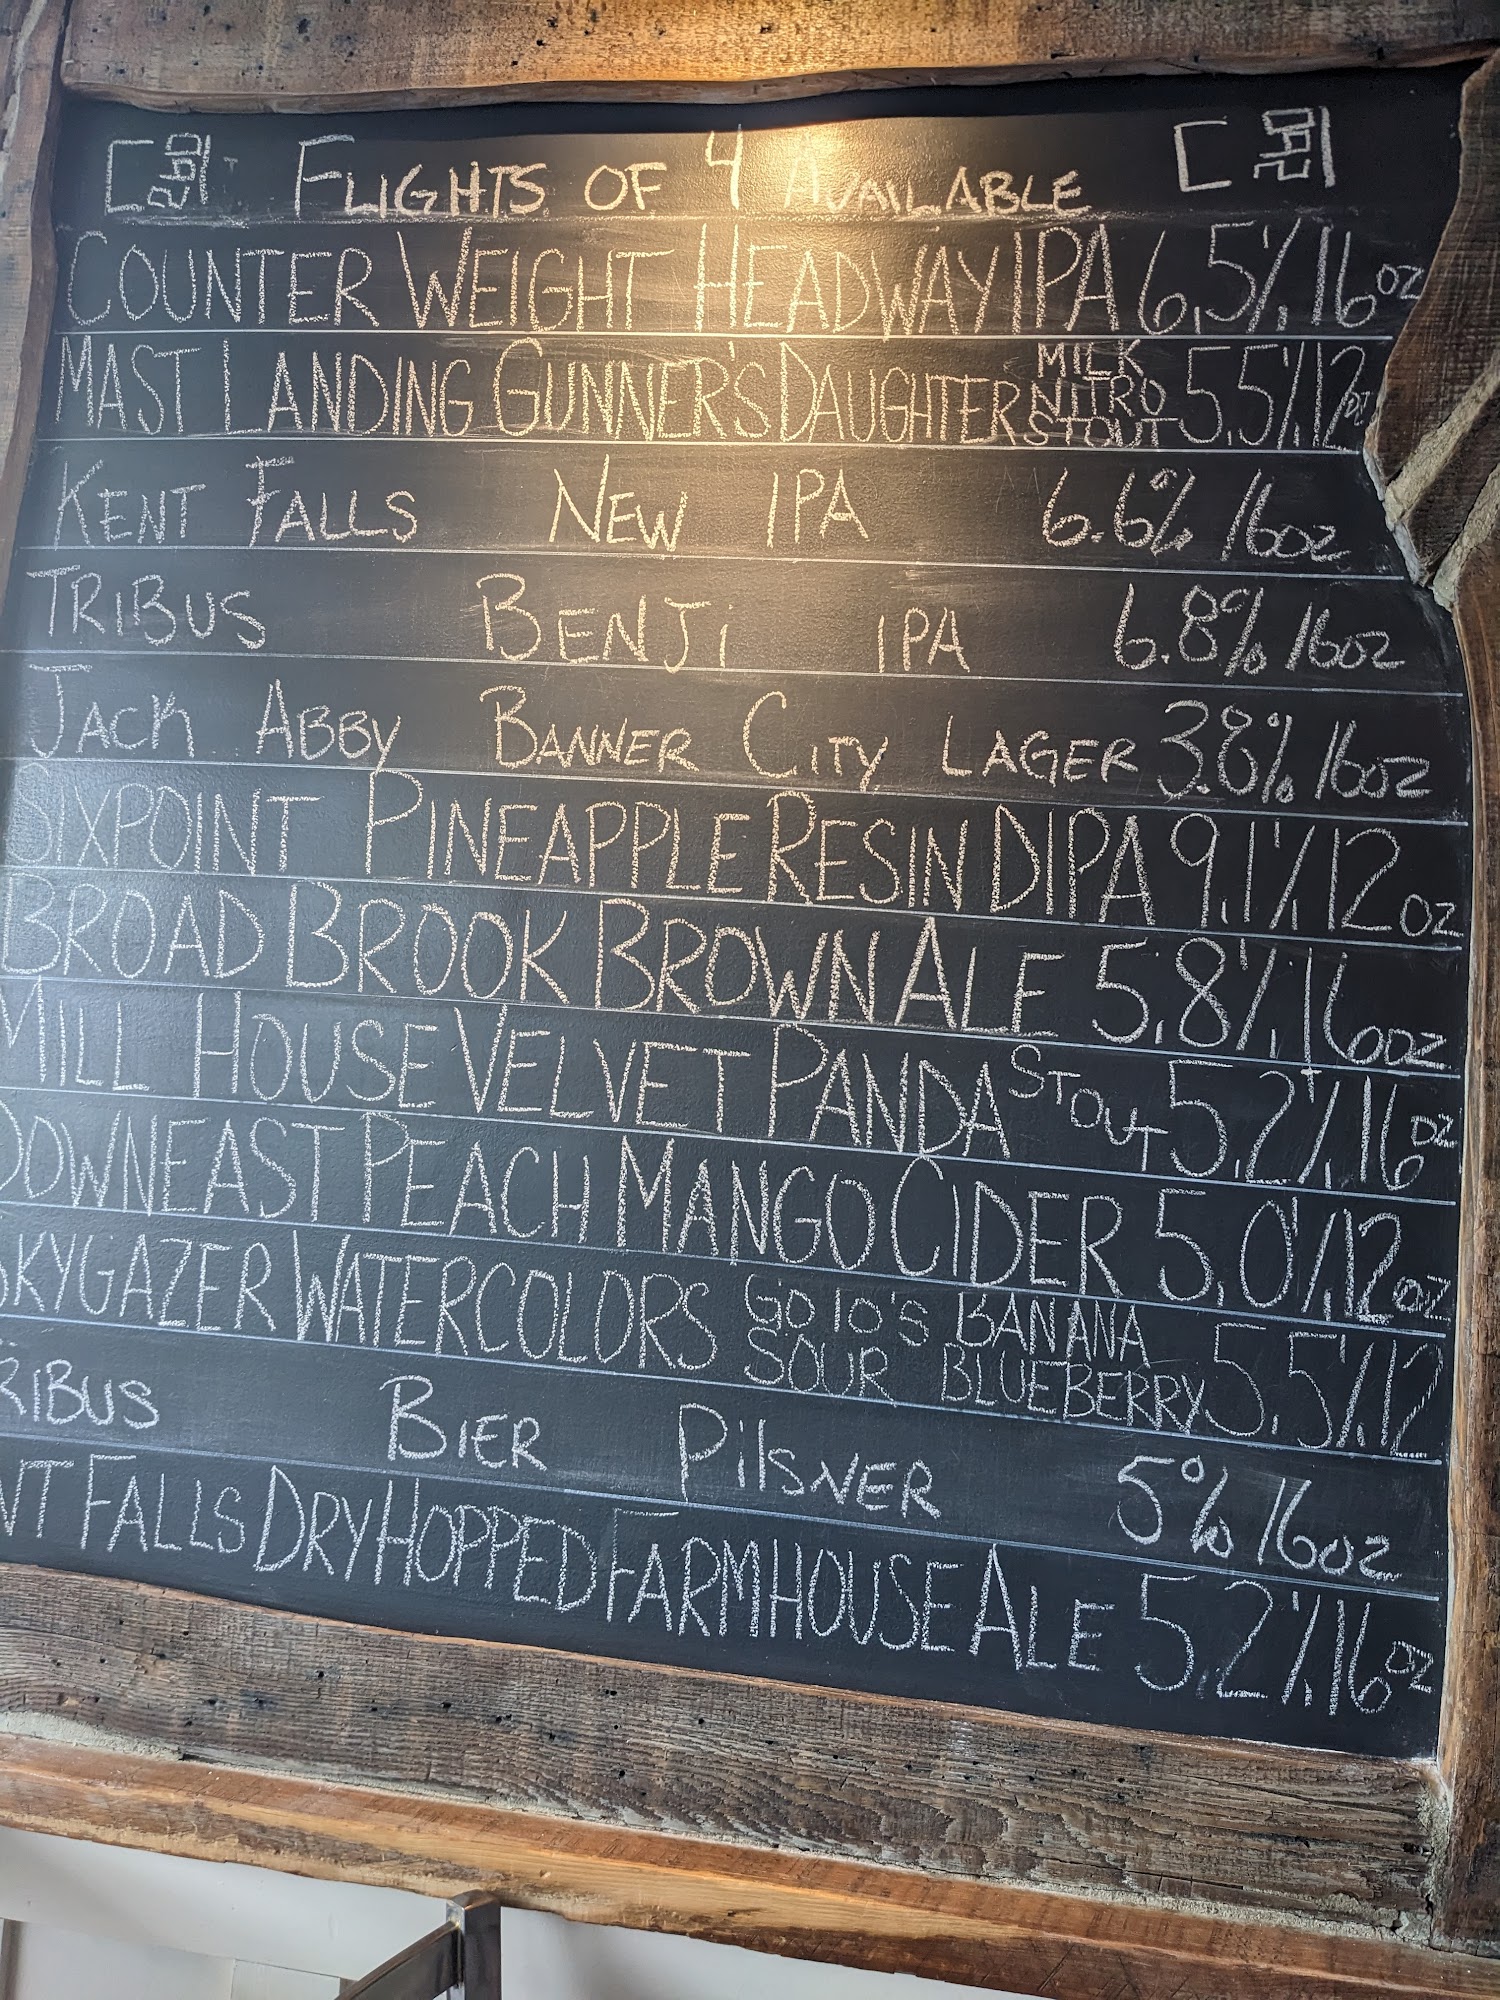 FLIGHTS OF 4 AVAILABLE
COUNTER WEIGHT HEADWAY IPA 6.5% 16oz
MAST LANDING GUNNER'S DAUGHTER MILK NITRO STOUT 5.5% 12oz
KENT FALLS NEW IPA 6.6% 16oz
TRIBUS BENJi IPA 6.8% 16oz
JACK ABBY BANNER CITY LAGER 3.8% 16oz
SIXPOINT PINEAPPLE RESIN DIPA 9.1% 12oz
BROAD BROOK BROWN ALE 5.8% 16oz
MILL HOUSE VELVET PANDA STOUT 5.2% 16oz
DOWNEAST PEACH MANGO CIDER 5.0% 12oz
SKYGAZER WATERCOLORS SOUR BANANA BLUEBERRY 5.5% 12
RIBUS BIER PilSNER 5% 16oz
NT FALLS DRY HOPPED FARMHOUSE ALE 5.2% 16oz